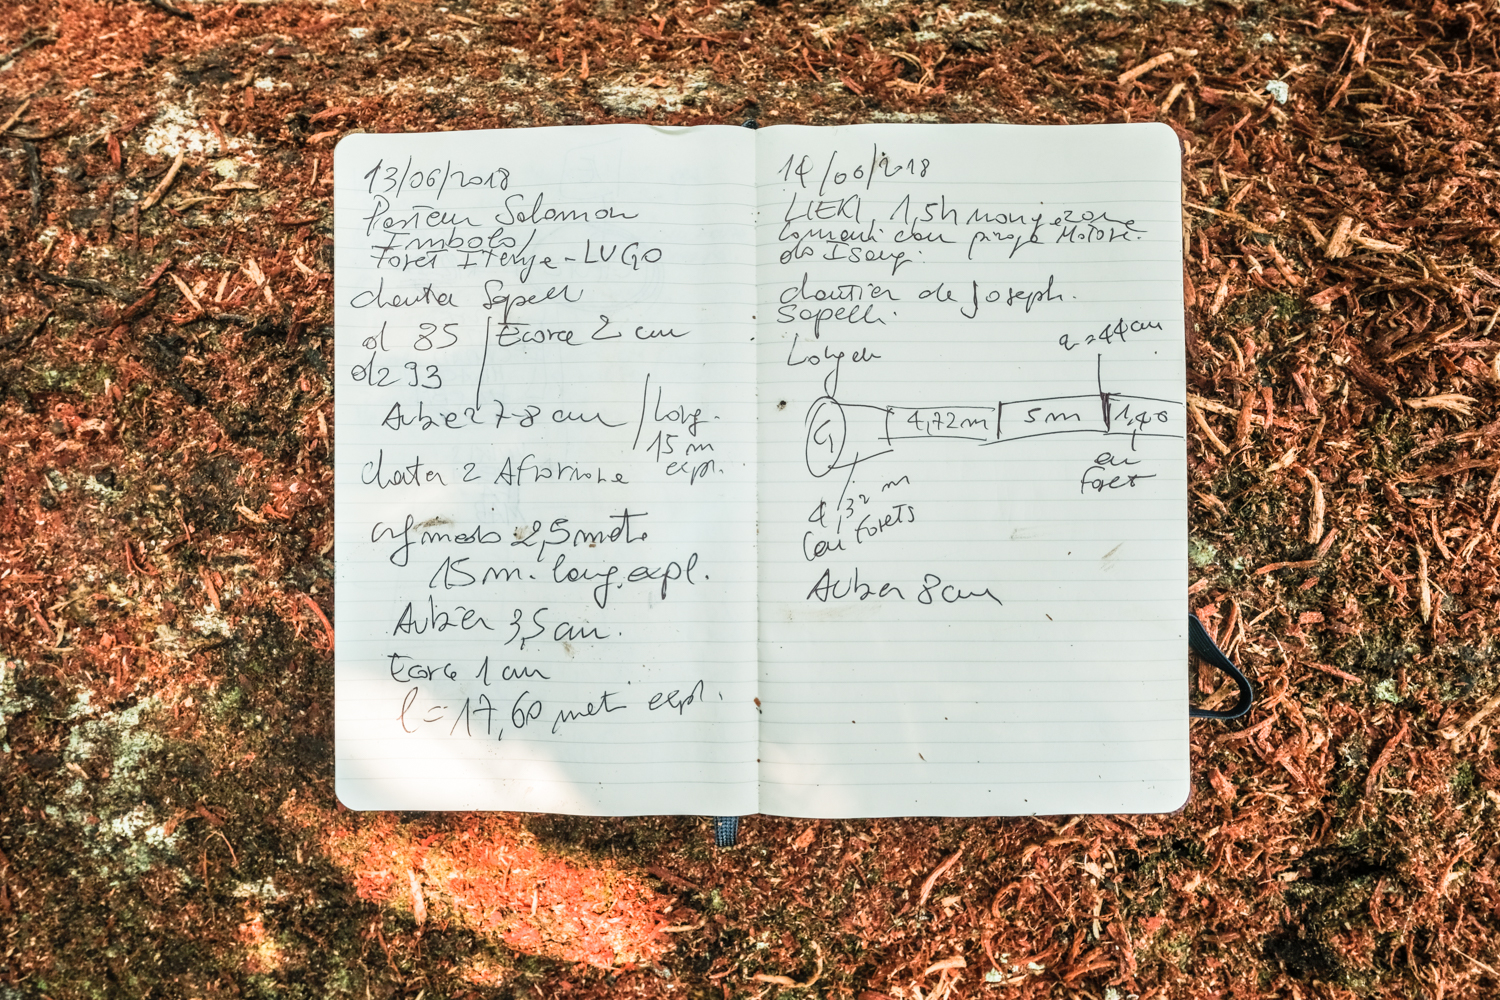 13/06/2018
Pasteur Solomon
Imbolo/
Foret Itenge - LUGO
Chantier Sapelli
d1 85 / Ecorce 2 cm
d2 93
Aubier 7-8 cm / Long.
15 m
expl.
Chantier 2 Afrormosia
2,5 met.
15 m. long. expl.
Aubier 3,5 cm.
Ecorce 1 cm
l = 17,60 met expl.
14/06/2018
LIEKI, 1,5h
pirogue Motori-
de Isangi.
chantier de Joseph.
Sapelli.
Longeur
44 cm
4,72 m
5 m
1,40
en
foret
4,32 m
en forets
Aubier 8 cm